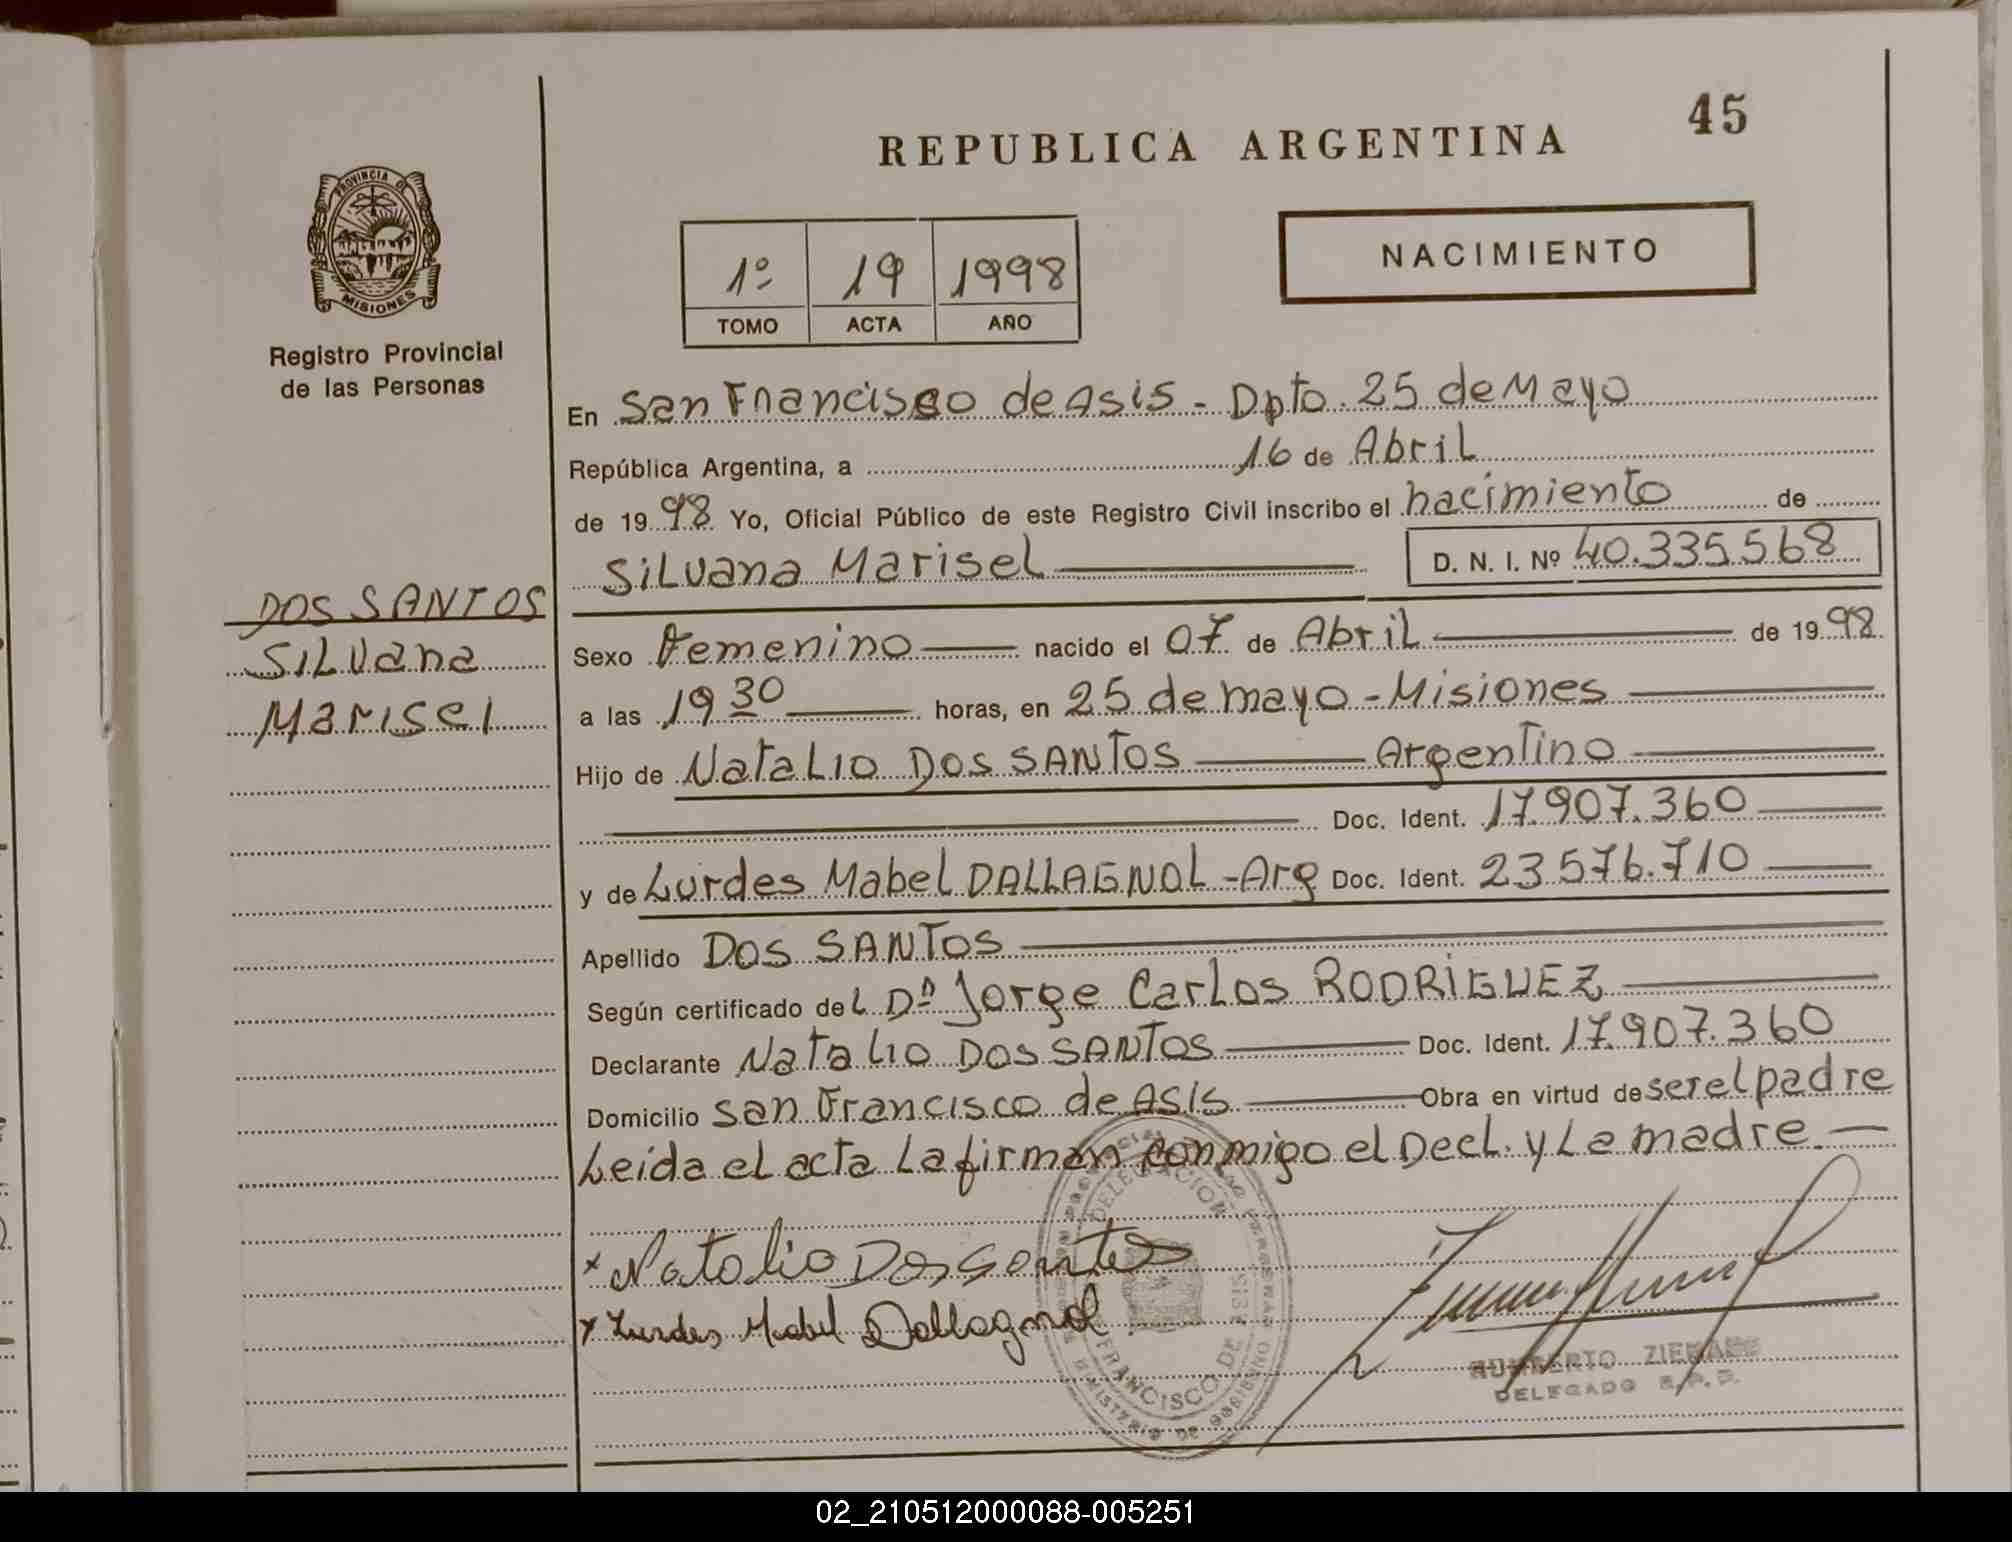 45
REPUBLICA ARGENTINA
PROVINCIA DE
MISIONES
Registro Provincial
de las Personas
1º 19 1998
TOMO ACTA AÑO
NACIMIENTO
En San Francisco de Asis - Dpto. 25 de Mayo
República Argentina, a 16 de Abril
de 1998 Yo, Oficial Público de este Registro Civil inscribo el nacimiento de
Silvana Marisel D. N. I. Nº 40.335.568
DOS SANTOS
Silvana
Marisel
Sexo Femenino nacido el 07 de Abril de 1998
a las 19 30 horas, en 25 de mayo - Misiones
Hijo de Natalio DOS SANTOS Argentino
Doc. Ident. 17.907.360
y de Lurdes Mabel DALLAGNOL - Arg Doc. Ident. 23.576.710
Apellido DOS SANTOS
Según certificado del Dº Jorge Carlos RODRIGUEZ
Declarante Natalio DOS SANTOS Doc. Ident. 17.907.360
Domicilio San Francisco de Asis Obra en virtud de ser el padre
Leida el acta la firman conmigo el Decl. y La madre.
x Natalio Dos Santos
x Lurdes Mabel Dallagnol
DELEGACION
FRANCISCO DE ASIS
MINISTERIO DE GOBIERNO
HUMBERTO
DELEGADO R.P.P.
02_210512000088-005251